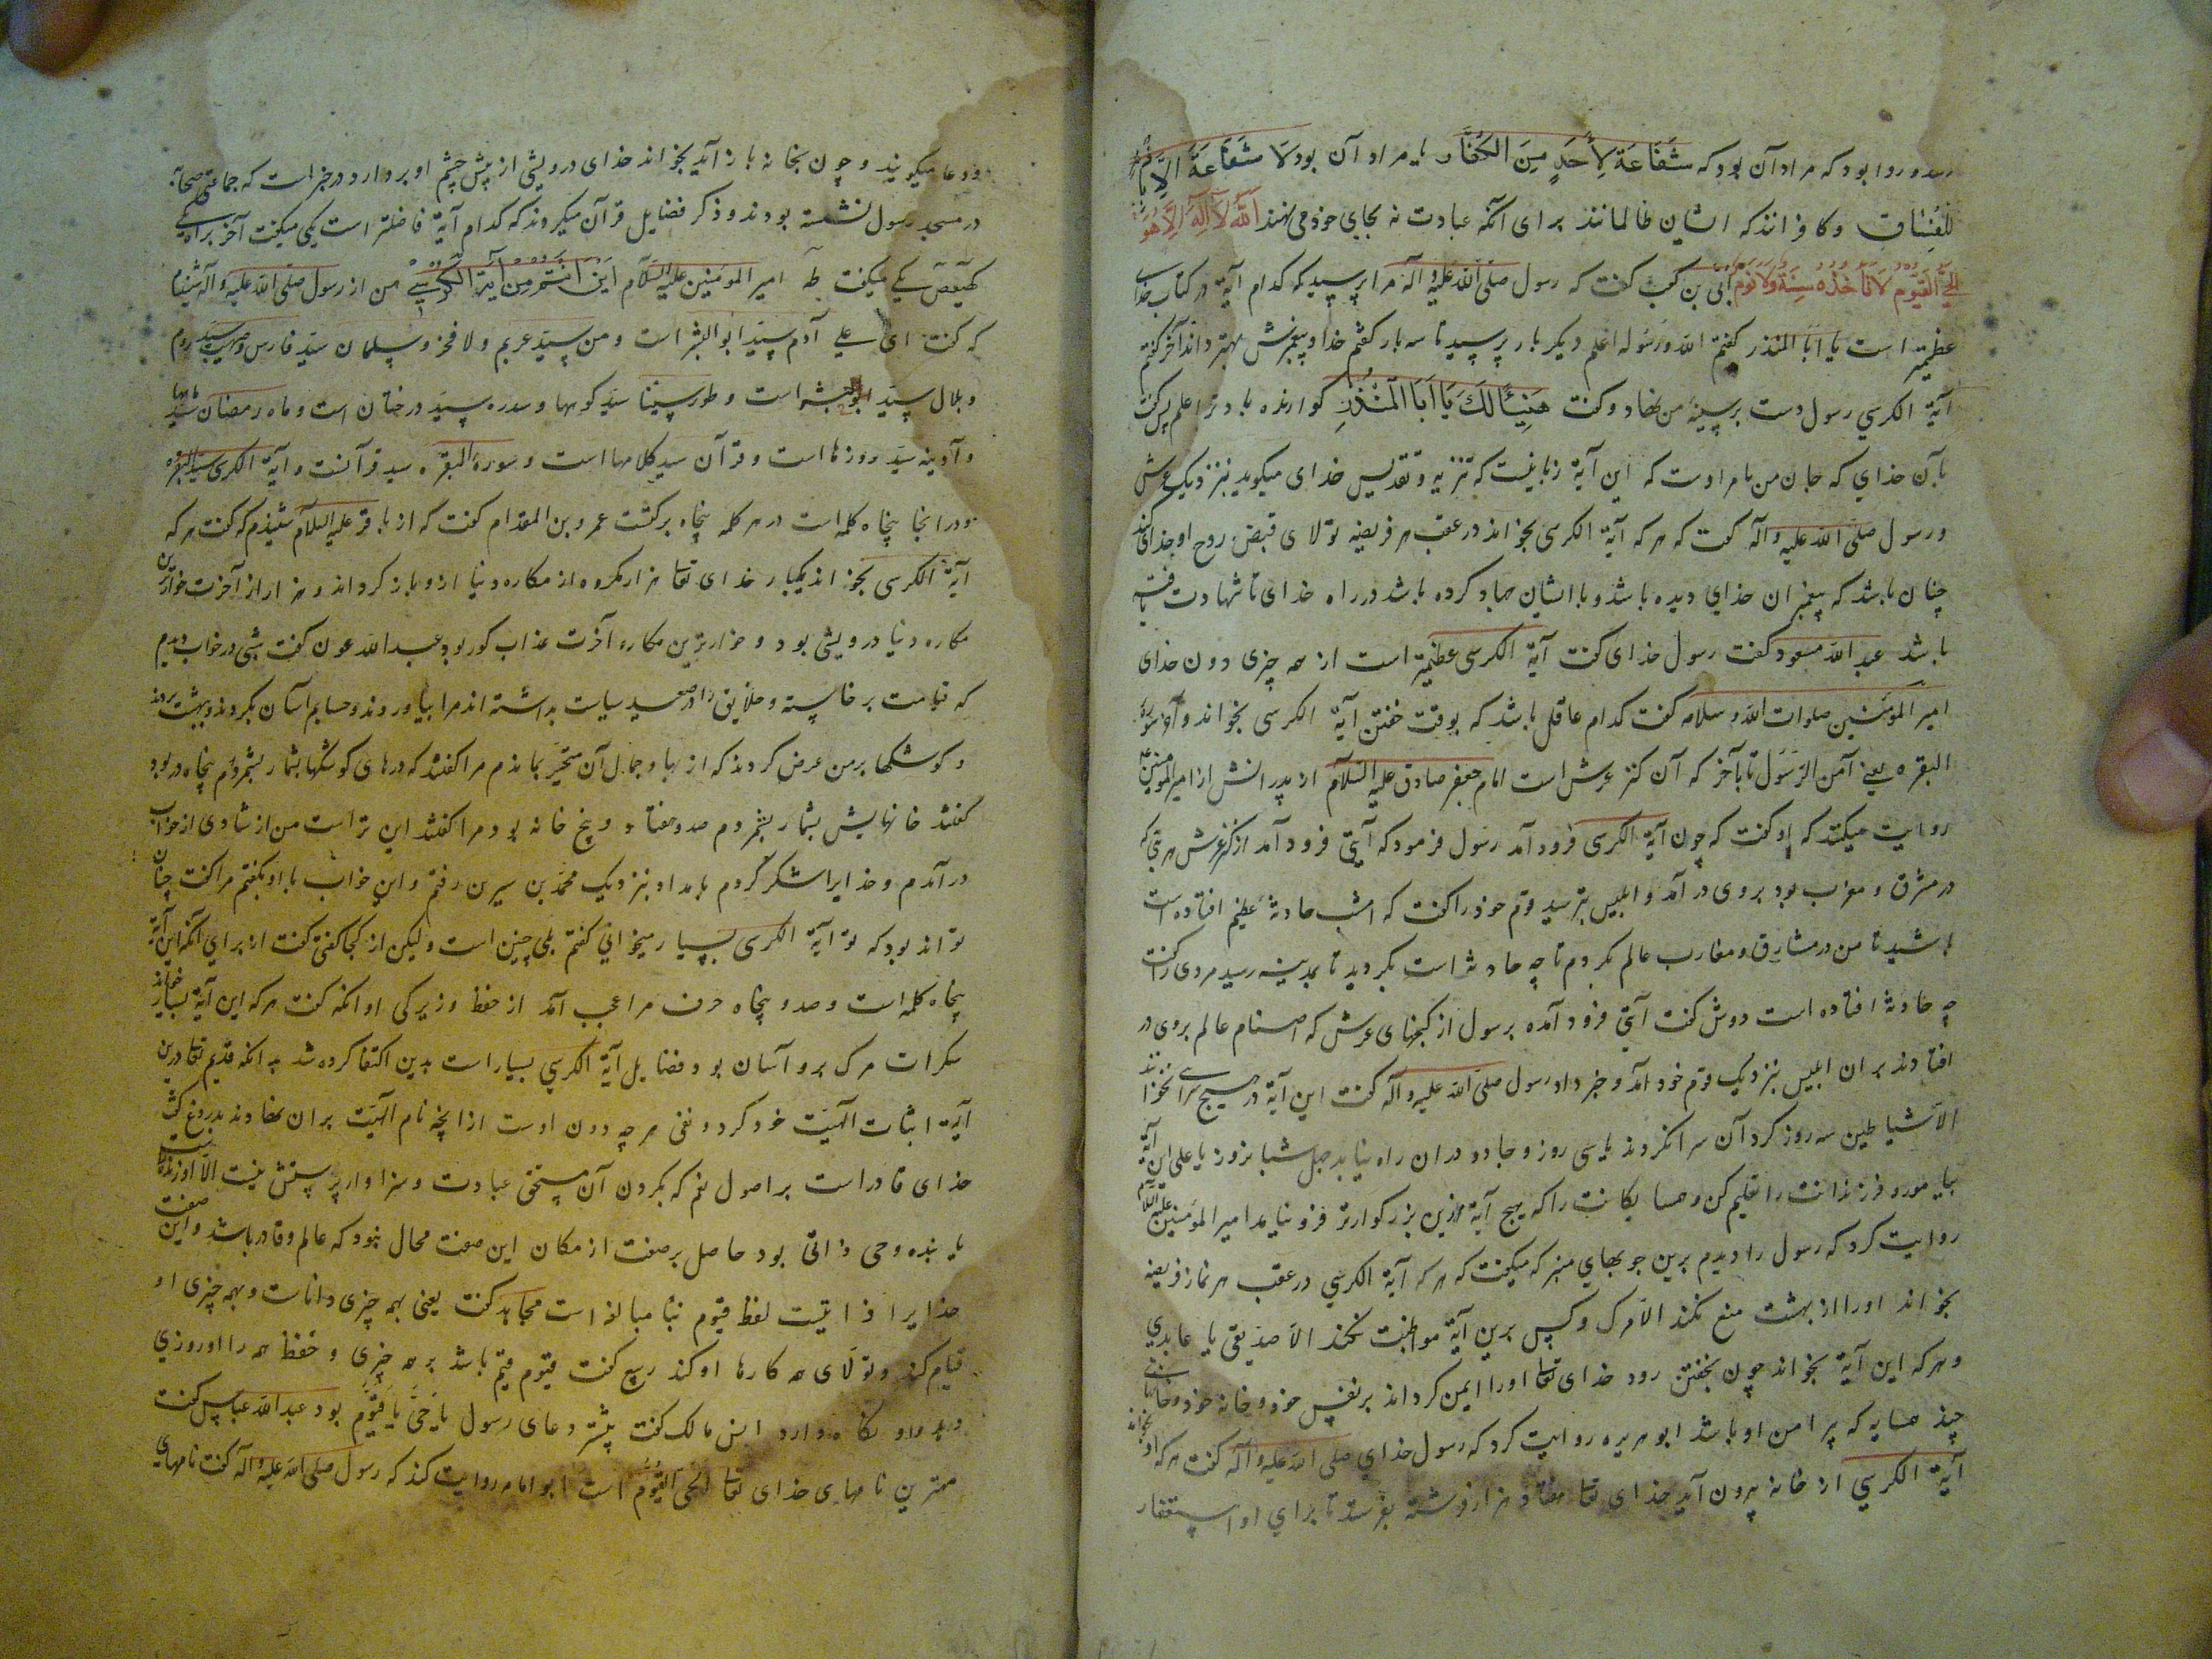 رسد و روا بود که مراد آن بود که شَفَاعَة لِأَحَدٍ مِنَ الكُفَّار یا مراد آن بود لَا شَفَاعَةَ اِلَّا بِاِذْنِهِ
للفُسّاق و کافرانند که ایشان ظالمانند برای آنکه عبادت نه بجای خود می نهند اَللهُ لَا اِلَهَ اِلَّا هُوَ
الحَیُّ القَیّوم لَا تَأخُذُهُ سِنَةٌ وَلَا نَوم ابی بن کعب گفت که رسول صلی الله علیه و آله مرا پرسید که کدام آیة در کتاب خدای
عظیمتر است یا ابا المنذر گفتم الله و رسوله اعلم دیگر بار پرسید تا سه بار گفتم خدا و پیغمبرش بهتر داند آخر گفتم
آیة الکرسی رسول دست بر سینه من نهاد و گفت هَنِيئًا لَكَ يَا اَبَا المُنْذِرِ گوارنده باد ترا علم پس گفت
بآن خدای که جان من بامر اوست که این آیة زبانیست که تنزیه و تقدیس خدای میگوید بنزدیک عرش
و رسول صلی الله علیه و آله گفت که هر که آیة الکرسی بخواند در عقب هر فریضه تولای قبض روح او خدای کند
چنان باشد که پیغمبران خدای دیده باشد و با ایشان جهاد کرده باشد در راه خدای تا شهادت یافته
باشد عبد الله مسعود گفت رسول خدای گفت آیة الکرسی عظیمتر است از همه چیزی دون خدای
امیر المؤمنین صلوات الله و سلامه گفت کدام عاقل باشد که بوقت خفتن آیة الکرسی بخواند و آخر سورة
البقره یعنی آمن الرسول تا بآخر که آن کنز عرش است امام جعفر صادق علیه السلام از پدرانش از امیر المؤمنین
روایت میکند که او گفت که چون آیة الکرسی فرود آمد رسول فرمود که آیتی فرود آمد از کنز عرش هر بتی که
در مشرق و مغرب بود بروی در آمد و ابلیس بترسید و قوم خود را گفت که امشب حادثه عظیم افتاده است
باشید تا من در مشارق و مغارب عالم بگردم تا چه حادثه است بگردید تا بمدینه رسید مردی را گفت
چه حادثه افتاده است دوش گفت آیتی فرود آمده برسول از گنجهای عرش که اصنام عالم بروی در
افتادند بر آن ابلیس بنزدیک قوم خود آمد و خبر داد رسول صلی الله علیه و آله گفت این آیة در هیچ سرای نخوانند
الا شیاطین سه روز گرد آن سرا نگردند یا سی روز و جادو در آن راه نیابد چهل شبانروز یا علی این آیة
بیاموز و فرزندانت را تعلیم کن و همسایگانت را که هیچ آیة ازین بزرگوارتر فرو نیامد امیر المؤمنین علیه السلام
روایت کرد که رسول را دیدم برین چوبهای منبر که میگفت که هر که آیة الکرسی در عقب هر نماز فریضه
بخواند اورا از بهشت منع نکند الا مرگ و کس برین آیة مواظبت نکند الا صدیقی یا عابدی
و هر که این آیة بخواند چون بخفتن رود خدای تعا اورا ایمن گرداند بر نفس خود و خانه خود و خانهای
چند همسایه که پیرامن او باشد ابو هریره روایت کرد که رسول خدای صلی الله علیه و آله گفت هر که او
آیة الکرسی از خانه بیرون آید خدای تعا هفتاد هزار فرشته بفرستد تا برای او استغفار
و دعا میگویند و چون بخانه باز آید بخواند خدای درویشی از پیش چشم او بردارد در خبر است که جماعتی صحابه
در مسجد رسول نشسته بودند و ذکر فضایل قرآن میکردند که کدام آیة فاضلتر است یکی میگفت آخر براة یکی
کهیعص یکی میگفت طه امیر المؤمنین علیه السلام گفت اَینَ اَنتُم مِن آیَةِ الکُرسِی من از رسول صلی الله علیه و آله شنیدم
که گفت ای علی آدم سید ابو البشر است و من سید عربم و لا فخر و سلمان سید فارس و صهیب سید روم
و بلال سید حبشه است و طور سینا سید کوهها و سدره سید درختان است و ماه رمضان سید ماهها
و آدینه سید روزها است و قرآن سید کلامها است و سورة البقره سید قرآنست و آیة الکرسی سید البقره
و در آنجا پنجاه کلمه است در هر کلمه پنجاه برکت عمرو بن المقدام گفت که از باقر علیه السلام شنیدم که گفت هر که
آیة الکرسی بخواند یکبار خدای تعا هزار مکروه از مکاره دنیا ازو باز گرداند و هزار از آخرت خوارترین
مکاره دنیا درویشی بود و خوارترین مکاره آخرت عذاب گور بود عبد الله عون گفت شبی در خواب دیدم
که قیامت برخاسته و خلایق را در صعید سیاست بداشته اند مرا بیاوردند و حسابم آسان بکردند و ببهشت بردند
و کوشکها بر من عرض کردند که از بها و جمال آن متحیر بماندم مرا گفتند که درهای کوشکها بشمار بشمردم پنجاه در بود
گفتند خانهایش بشمار بشمردم صد و هفتاد و پنج خانه بود مرا گفتند این تراست من از شادی از خواب
در آمدم و خدایرا شکر کردم بامداد بنزدیک محمد بن سیرین رفتم و این خواب با او بگفتم مرا گفت چنان
تواند بود که تو آیة الکرسی بسیار میخوانی گفتم بلی چنین است ولیکن از کجا گفتی گفت از برای آنکه این آیة
پنجاه کلمه است و صد و پنجاه حرف مرا عجب آمد از حفظ و زیرکی او آنکه گفت هر که این آیة بسیار خواند
سکرات مرگ برو آسان بود و فضایل آیة الکرسی بسیار است بدین اکتفا کرده شد بدانکه قدیم تعا درین
آیة اثبات الهیت خود کرد و نفی هر چه دون اوست از آنچه نام الهیت بر آن نهادند بدروغ گفت
خدای قادر است بر اصول نعم که بکردن آن مستحق عبادت و سزاوار پرستش نیست الا او
پاینده و حی ذاتی بود حاصل بر صفت از مکان این صفت محال نبود که عالم و قادر باشد و این صفت
خدایرا ذاتیست لفظ قیوم بناء مبالغه است مجاهد گفت یعنی بهمه چیزی داناست و بهمه چیزی او
قیام کند و تولای همه کارها او کند ربیع گفت قیوم قیم باشد بر همه چیزی و حفظ همه را او روزی
دهد و او نگاه دارد انس مالک گفت بیشتر دعای رسول یا حَیُّ یا قَیّوم بود عبد الله عباس گفت
مهترین نامهای خدای تعا الحی القیوم است ابو امامه روایت کند که رسول صلی الله علیه و آله گفت نامهای